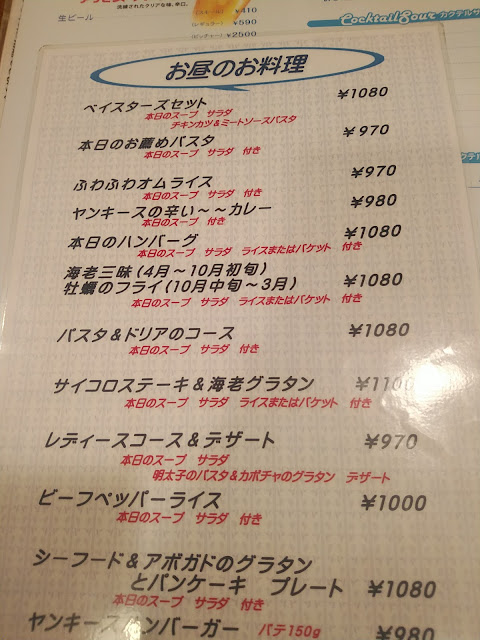 洗練されたクリアな味、辛口。
生ビール
¥410
¥590
¥2500
Cocktail Sour
お昼のお料理
ベイスターズセット ¥1080
本日のスープ サラダ
チキンカツ＆ミートソースパスタ
本日のお薦めパスタ ¥970
本日のスープ サラダ 付き
ふわふわオムライス ¥970
本日のスープ サラダ 付き
ヤンキースの辛い～～カレー ¥980
本日のスープ 付き
本日のハンバーグ ¥1080
本日のスープ サラダ ライスまたはバケット 付き
海老三昧（4月～10月初旬）
牡蠣のフライ（10月中旬～3月） ¥1080
本日のスープ サラダ ライスまたはバケット 付き
パスタ＆ドリアのコース ¥1080
本日のスープ サラダ 付き
サイコロステーキ＆海老グラタン ¥1100
本日のスープ サラダ ライスまたはバケット 付き
レディースコース＆デザート ¥970
本日のスープ サラダ
明太子のパスタ＆カボチャのグラタン デザート
ビーフペッパーライス ¥1000
本日のスープ サラダ 付き
シーフード＆アボガドのグラタン
とパンケーキ プレート ¥1080
本日のスープ サラダ 付き
ヤンキースハンバーガー パテ150g ¥980